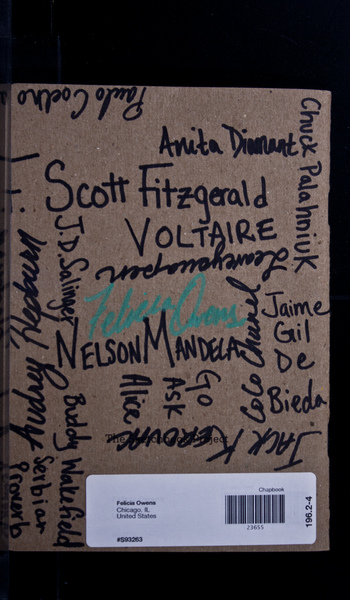 Paulo Coelho
Chuck Palahniuk
Anita Diamant
Scott Fitzgerald
VOLTAIRE
J.D. Salinger
Felicia Owens
NELSON MANDELA
Coco Chanel
Jaime
Gil
De
Bieda
Go
Ask
Alice
JACK KEROUAC
Audrey Hepburn
Buddy Wakefield
Serbian
Proverb
Chapbook
Felicia Owens
Chicago, IL
United States
#S93263
23655
196.2-4